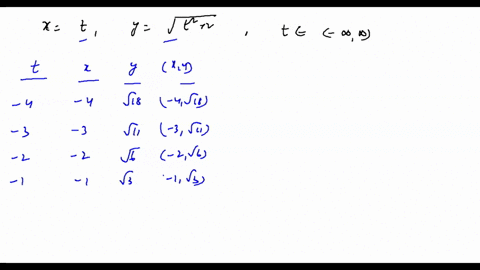 x = t, y = √(t²+2) , t ∈ (-∞, ∞)
t x y (x,y)
-4 -4 √18 (-4, √18)
-3 -3 √11 (-3, √11)
-2 -2 √6 (-2, √6)
-1 -1 √3 -1, √3)